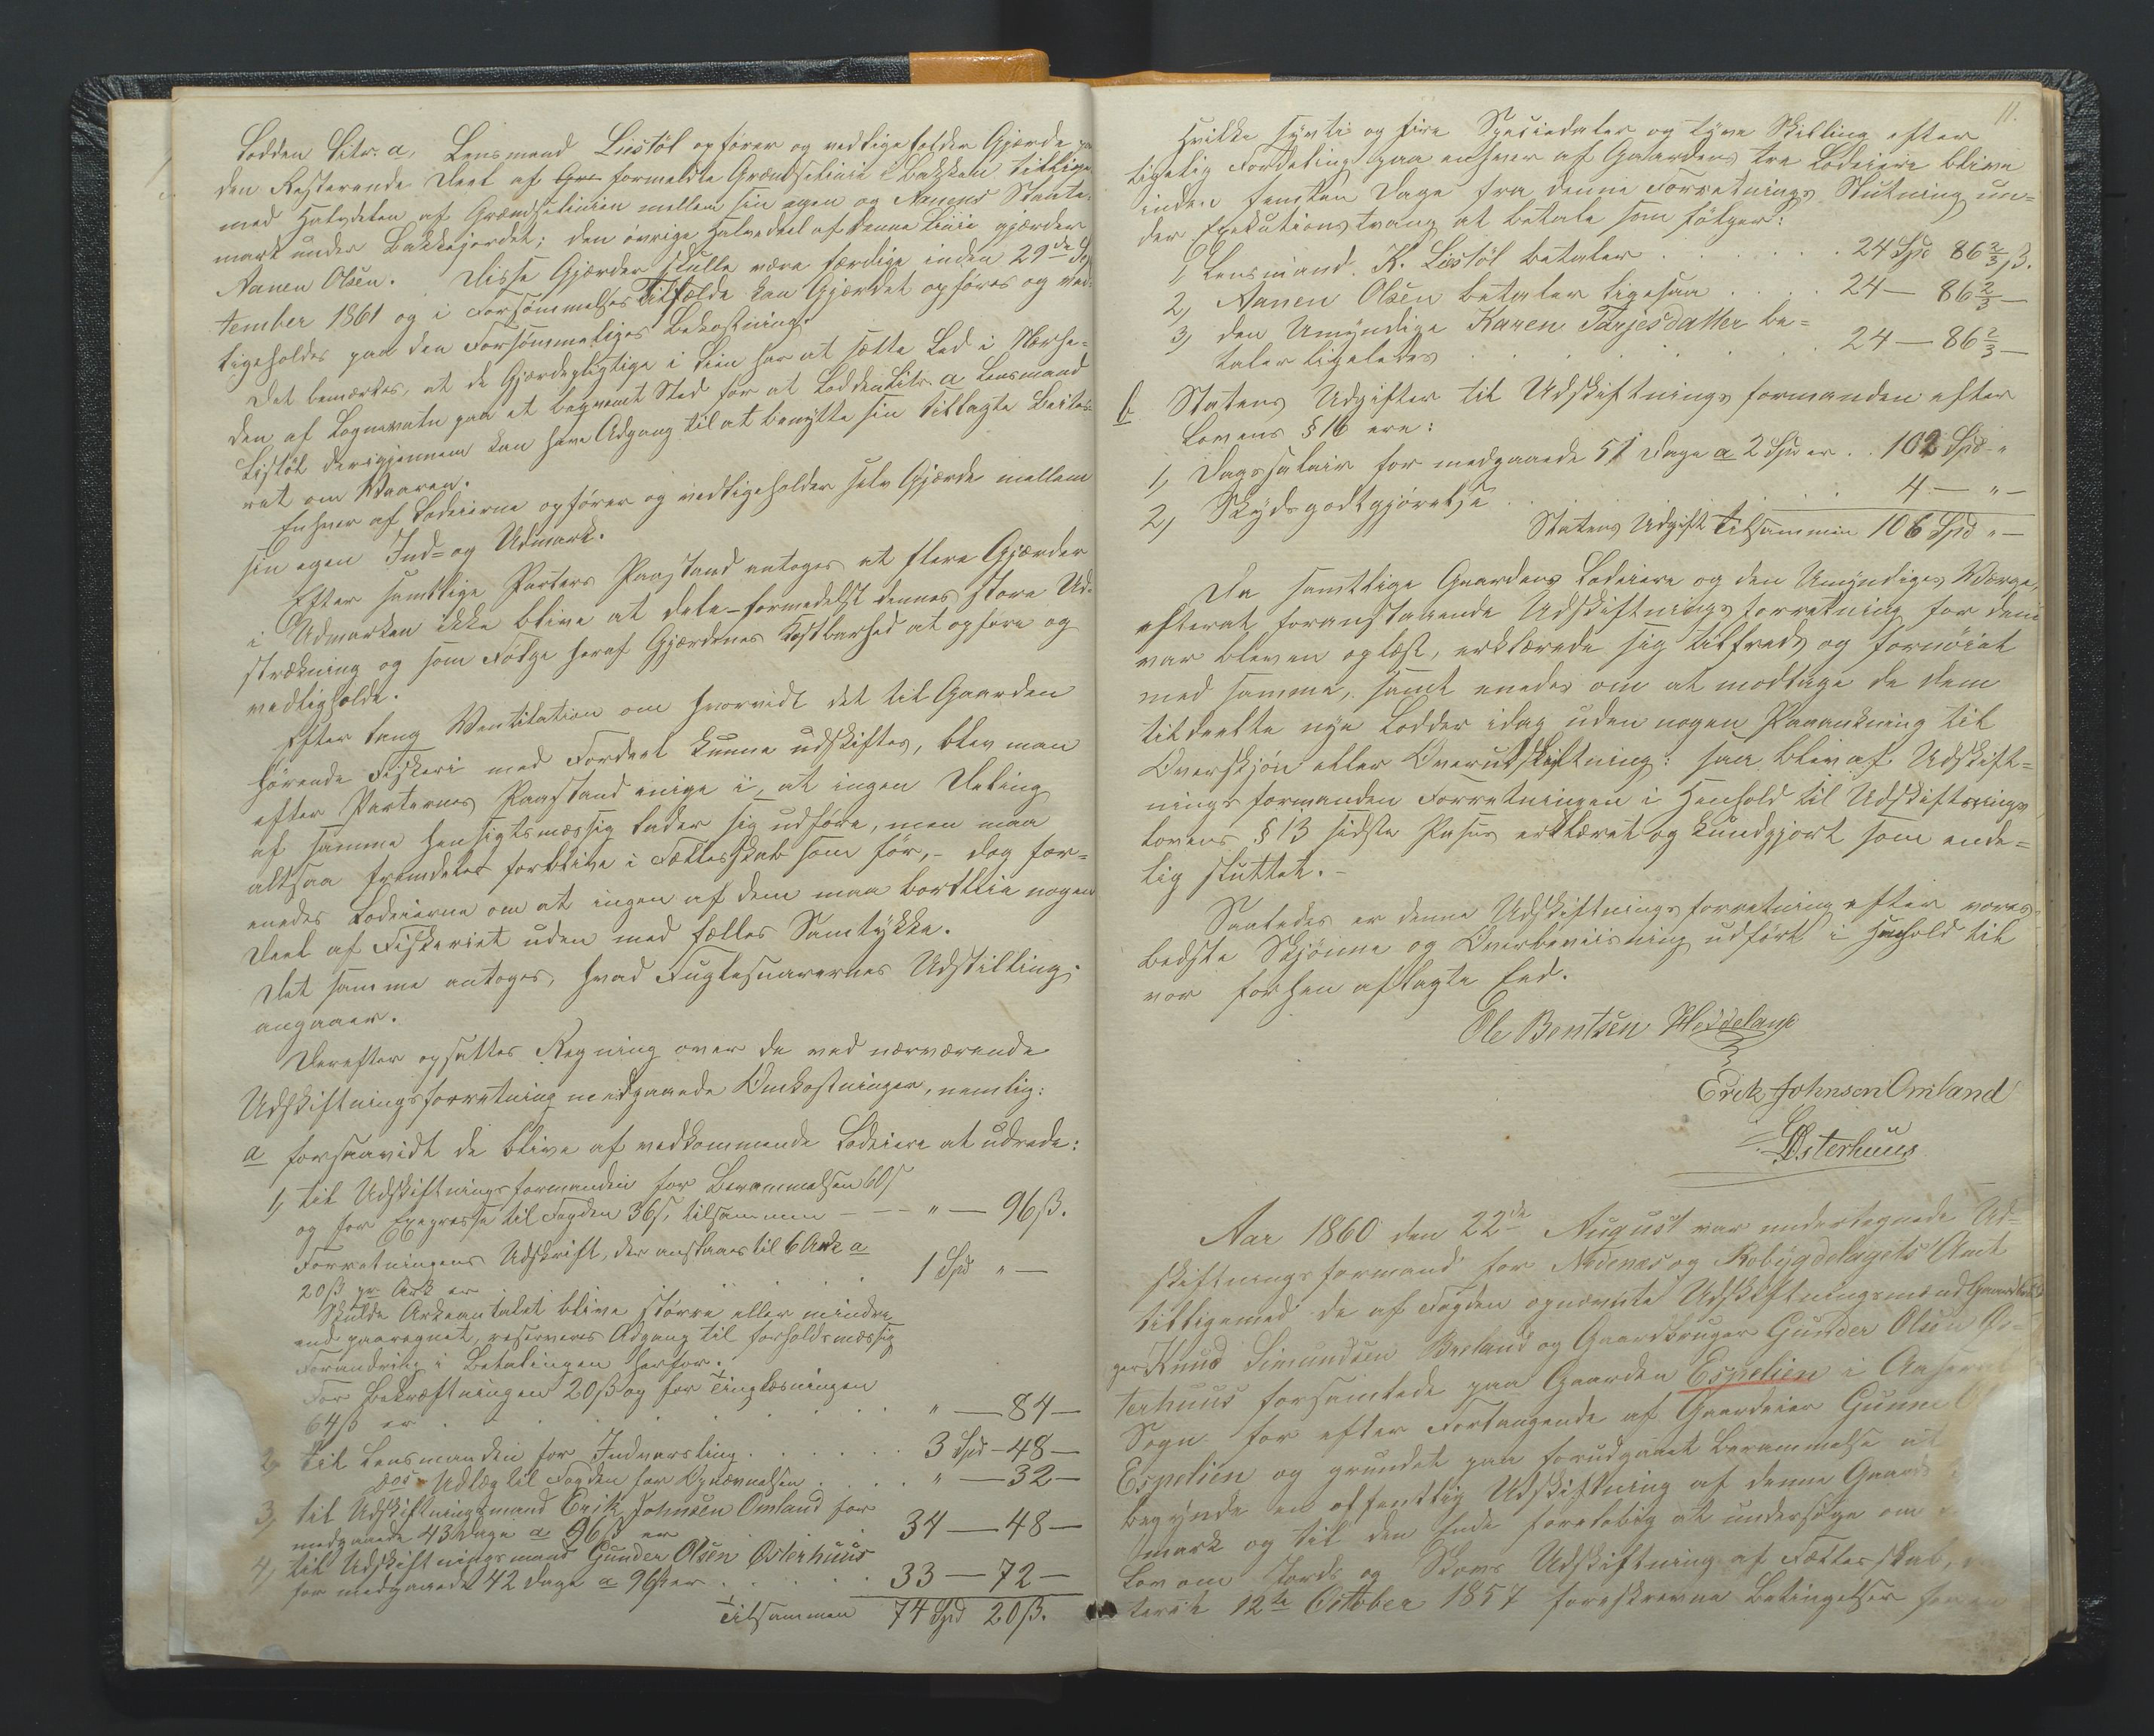 Lodden Litr. a, Lensmand Liestöl opfører og vedligeholder Gjærde paa
den Resterende Deel af formeldte Grændselinie i Bakken tillige
med Halvdelen af Grændselinien mellem sin egen og Aanens
mark under Bakkejordet; den øvrige Halvdeel af denne Linie gjærder
Aanen Olsen. Disse Gjærder skulle være færdige inden 29de Sep
tember 1861 og i Forsømmelses Tilfælde kan Gjærdet opføres og ved
ligeholdes paa den Forsømmeliges Bekostning.
Det bemærkes, at de Gjærdepligtige i Lien har at sætte Led i Nærhe-
den af Lognevatn paa et beqvemt Sted for at Lodden Litr. a Lensmand
Liestöl derigjennem kan have Adgang til at benytte sin tillagte Beites-
ret om Vaaren.
Enhver af Lodeierne opfører og vedligeholder selv Gjærde mellem
sin egen Ind- og Udmark.
Efter samtlige Parters Paastand antoges at flere Gjærder
i Udmarken ikke blive at dele formedelst dennes store Ud-
strækning og som Følge heraf Gjærdenes Kostbarhed at opføre og
vedligeholde.
Efter lang Ventilation om hvorvidt det til Gaarden
hørende Fiskeri med Fordeel kunne udskiftes, blev man
efter Parternes Paastand enige i, at ingen Deling
af samme hensigtsmæssig lader sig udføre, men maa
altsaa fremdeles forblive i Fællesskab som før, - dog for-
enedes Lodeierne om at ingen af dem maa bortleie nogen
Deel af Fiskeriet uden med fælles Samtykke.
Det samme antoges, hvad Fuglesnarernes Udstilling
angaaer.
Derefter opsattes Regning over de ved nærværende
Udskiftningsforretning medgaaede Omkostninger, nemlig:
a forsaavidt de blive af vedkommende Lodeiere at udrede:
1, til Udskiftningsformanden for Berammelsen 60 ß
og for Expresse til Fogden 36 ß, tilsammen - - - " — 96 ß.
Forretningens Udskrift, der anslaaes til 6 Ark a
20 ß pr Ark er . . . . . 1 Spd " —
Skulde Arkeantallet blive større eller mindre
end paaregnet, reserveres Adgang til forholdsmæssig
Forandring i Betalingen herfor.
For Bekræftningen 20 ß og for Tinglæsningen
64 ß er . . . . . " — 84 —
2, til Lensmanden for Indvarsling . . . . . 3 Spd - 48 —
dos Udlæg til Fogden for Opnævnelsen . . . " — 32 —
3, til Udskiftningsmand Erik Johnsen Omland for
medgaaede 43 Dage a 96 ß er . . . 34 — 48 —
4, til Udskiftningsmand Gunder Olsen Osterhuus
for medgaaede 42 Dage a 96 ß er . . . . . 33 — 72 —
Tilsammen 74 Spd 20 ß.
11.
Hvilke sytti og fire Speciedaler og tyve Skilling efter
ligelig Fordeling paa enhver af Gaardens tre Lodeiere blive
inden femten Dage fra denne Forretnings Slutning un-
der Exekutionstvang at betale som følger:
1, Lensmand K. Liestöl betaler . . . . . . 24 Spd 86 2/3 ß.
2, Aanen Olsen betaler ligesaa . . . . 24 — 86 2/3 —
3, den Umyndige Karen Tarjesdatter be-
taler ligeledes . . . . . . 24 — 86 2/3 —
b Statens Udgifter til Udskiftningsformanden efter
Lovens § 16 ere:
1, Dagsalair for medgaaede 51 Dage a 2 Spd er . . 102 Spd "
2, Skydsgodtgjørelse . . . . . . 4 — " —
Statens Udgift Tilsammen 106 Spd " —
Da samtlige Gaardens Lodeiere og den Umyndiges Værge,
efterat foranstaaende Udskiftningsforretning for dem
var bleven oplæst, erklærede sig tilfreds og fornøiet
med samme, samt enedes om at modtage de dem
tildeelte nye Lodder idag uden nogen Paaankning til
Overskjøn eller Overudskiftning: saa blev af Udskift-
ningsformanden Forretningen i Henhold til Udskiftnings
lovens § 13 sidste Passus erklæret og kundgjort som ende-
lig sluttet. -
Saaledes er denne Udskiftningsforretning efter vores
bedste Skjønne og Overbeviisning udført i Henhold til
vor forhen aflagte Eed.
Ole Bentsen Heddeland
Erik Johnsen Omland
G O Osterhuus
Aar 1860 den 22de August var undertegnede Ud-
skiftningsformand for Nedenes og Robygdelagets Amt
tilligemed de af Fogden opnævnte Udskiftningsmænd Gaardbru
ger Knud Simundsen Breland og Gaardbruger Gunder Olsen Os-
terhuus forsamlede paa Gaarden Espelien i Aaseral
Sogn for efter Forlangende af Gaardeier Gunne
Espelien og grundet paa forudgaaet Berammelse at
begynde en offentlig Udskiftning af denne Gaards
mark og til den Ende foreløbig at undersøge om
Lov om Jords og Skovs Udskiftning af Fællesskab,
teret 12te October 1857 foreskrevne Betingelser for